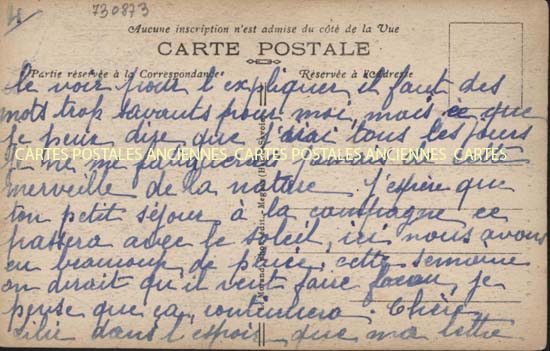 4
730873
Aucune inscription n'est admise du côté de la Vue
CARTE POSTALE
Partie réservée à la Correspondance
Réservée à l'Adresse
le voir pour l'expliquer il faut des
mots trop savants pour moi, mais ce que
je peux dire que j'irai tous les jours
je ne me fatiguerais
CARTES POSTALES ANCIENNES CARTES POSTALES ANCIENNES CARTES POSTALES ANCIENNES
merveille de la nature. J'espère que
ton petit séjour à la campagne ce
passera avec le soleil, ici nous avons
eu beaucoup de pluie, cette semaine
on dirait qu'il veut faire beau, je
pense que ça continuera. Chère
dans l'espoir que ma lettre